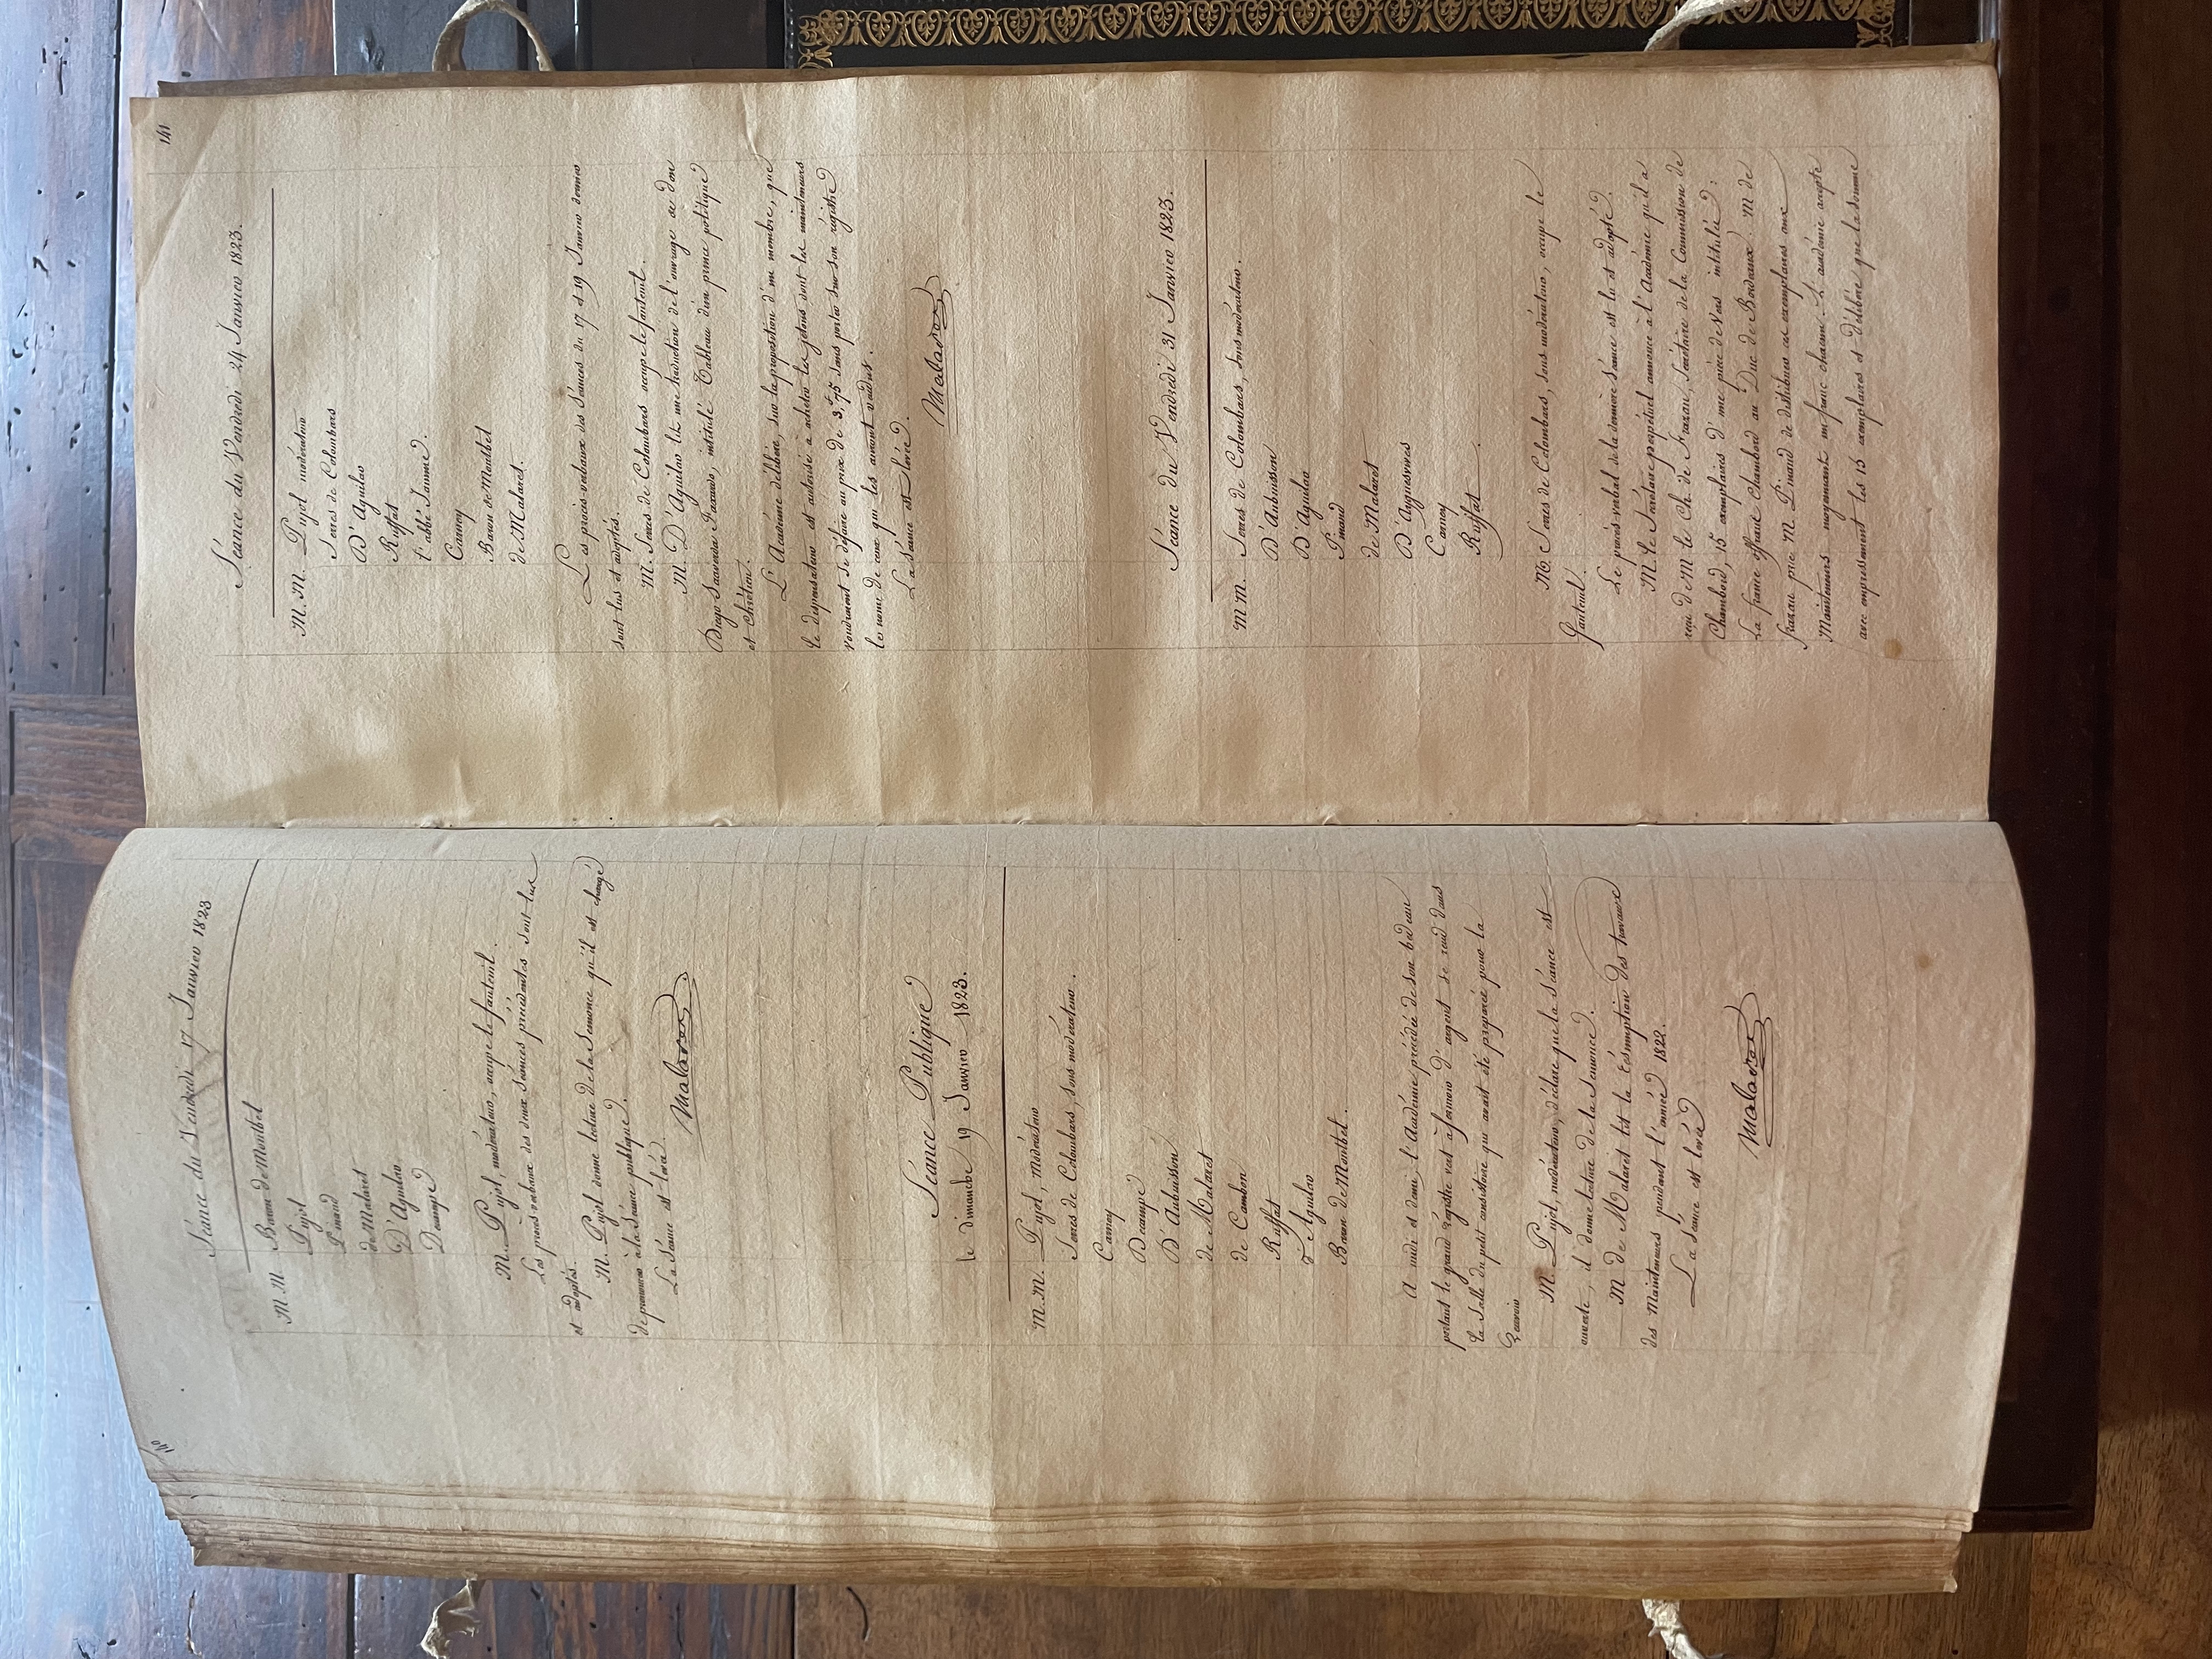 140
Séance du Vendredi 17 Janvier 1823
M.M. Baron de Montbel
Pujol
Pinaud
de Malaret
D'Aguilar
Decampe
M. Pujol, modérateur, occupe le fauteuil.
Les procès-verbaux des deux Séances précédentes sont lus
et adoptés.
M. Pujol donne lecture de la Semonce qu'il est chargé
de prononcer à la Séance publique.
La Séance est levée.
Malaret
Séance Publique
le dimanche 19 Janvier 1823.
M.M. Pujol, Modérateur
Serres de Colombars, sous modérateur.
Carney
Decampe
D'Aubuisson
de Malaret
de Cambon
Ruffat
D'Aguilar
Baron de Montbel.
A midi et demi, l'Académie précédée de son bedeau
portant le grand régistre vert à fermoir d'argent se rend dans
la Salle du petit consistoire qui avait été préparée pour la
Semonce
M. Pujol, modérateur, déclare que la Séance est
ouverte, il donne lecture de la Semonce.
M. de Malaret lit la résumption des travaux
des Mainteneurs pendant l'année 1822.
La Séance est levée
Malaret
141
Séance du Vendredi 24 Janvier 1823.
M.M. Pujol modérateur
Serres de Colombars
D'Aguilar
Ruffat
l'abbé Jamme.
Carney
Baron de Montbel
de Malaret.
Les procès-verbaux des Séances du 17 et 19 Janvier dernier
sont lus et adoptés.
M. Serres de Colombars occupe le fauteuil.
M. D'Aguilar lit une traduction de l'ouvrage de don
Diego Saavedra Faxardo, intitulé Tableau d'un prince politique
et Chrétien.
L'Académie délibère, sur la proposition d'un membre, que
le dispensateur est autorisé à acheter les jetons dont les mainteneurs
voudraient se défaire au prix de 3,f 75 sans porter sur son régistre
les noms de ceux qui les auront vendus.
La Séance est levée.
Malaret
Séance du Vendredi 31 Janvier 1823.
M.M. Serres de Colombars, sous modérateur.
D'Aubuisson
D'Aguilar
Pinaud
de Malaret
D'Ayguesvives
Carney
Ruffat.
M. Serres de Colombars, sous modérateur, occupe le
fauteuil.
Le procès verbal de la dernière Séance est lu et adopté.
M. le Secrétaire perpétuel annonce à l'Académie qu'il a
reçu de M. le Ch. de Frazan, Secrétaire de la Commission de
Chambord, 15 exemplaires d'une pièce de Vers intitulée:
La france offrant Chambord au Duc de Bordeaux. M. de
frazan prie M. Pinaud de distribuer ces exemplaires aux
Mainteneurs moyennant un franc chacun. L'académie accepte
avec empressement les 15 exemplaires et délibère que la somme